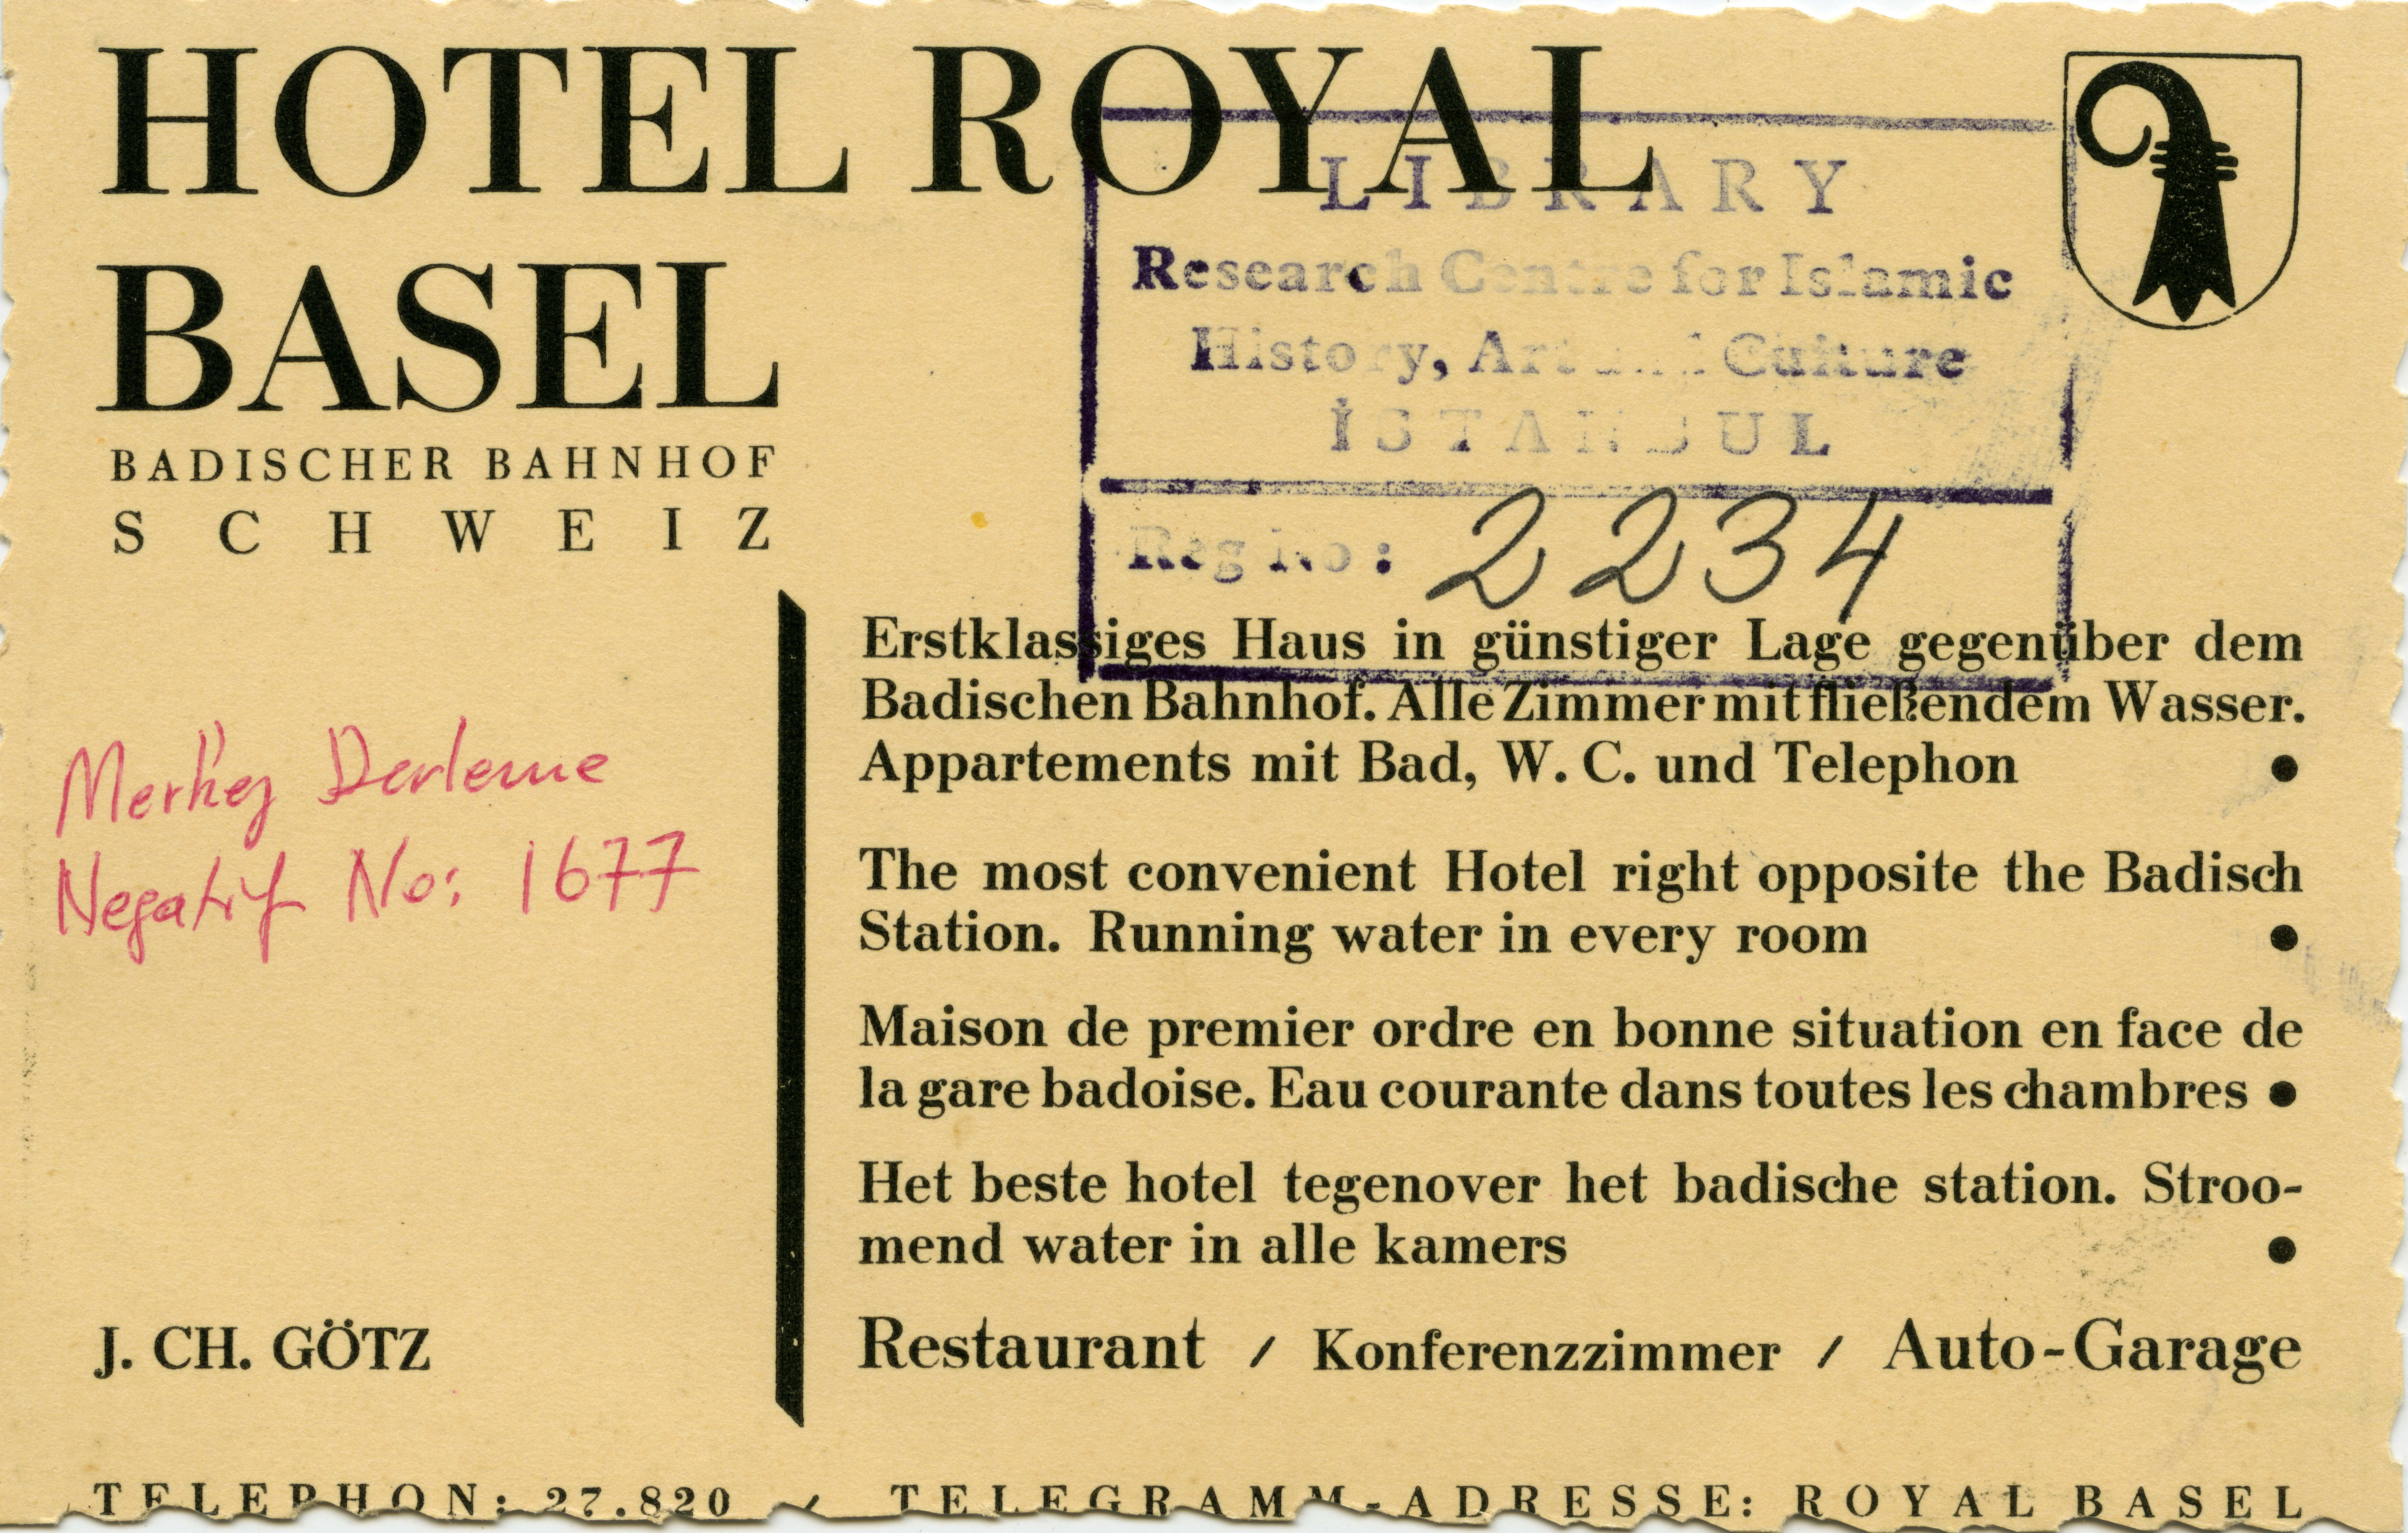 HOTEL ROYAL
BASEL
BADISCHER BAHNHOF
SCHWEIZ
LIBRARY
Research Centre for Islamic
History, Art and Culture
İSTANBUL
Reg No: 2234
Merkez Derleme
Negatif No: 1677
Erstklassiges Haus in günstiger Lage gegenüber dem
Badischen Bahnhof. Alle Zimmer mit fließendem Wasser.
Appartements mit Bad, W. C. und Telephon •
The most convenient Hotel right opposite the Badisch
Station. Running water in every room •
Maison de premier ordre en bonne situation en face de
la gare badoise. Eau courante dans toutes les chambres •
Het beste hotel tegenover het badische station. Stroo-
mend water in alle kamers •
J. CH. GÖTZ
Restaurant / Konferenzzimmer / Auto-Garage
TELEPHON: 27.820 / TELEGRAMM-ADRESSE: ROYAL BASEL